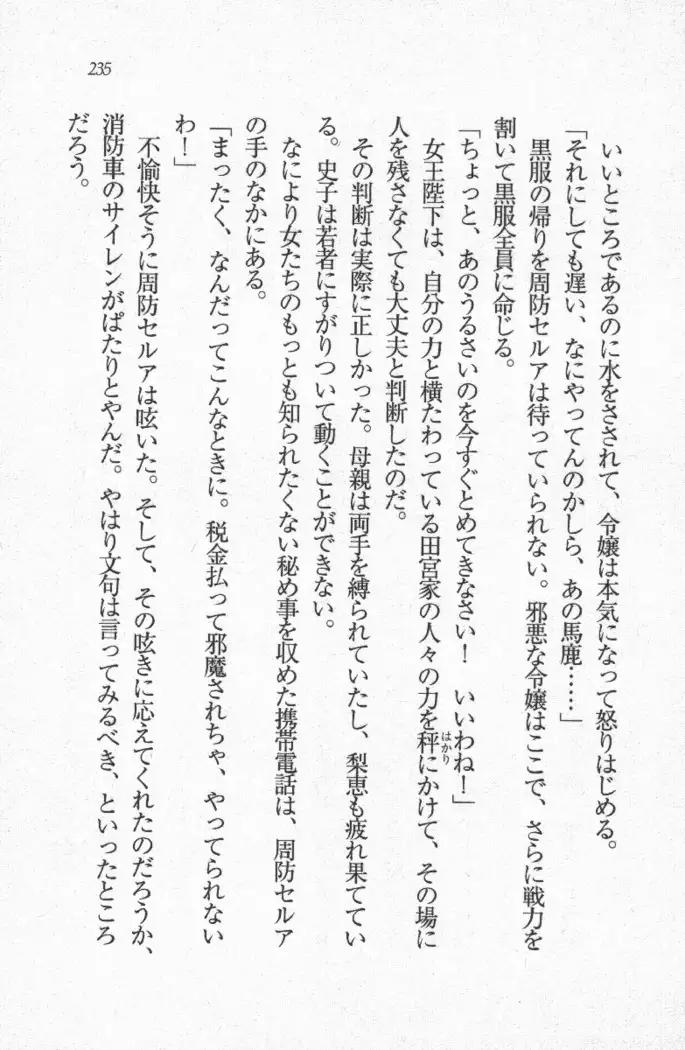 235
いいところであるのに水をさされて、令嬢は本気になって怒りはじめる。
「それにしても遅い、なにやってんのかしら、あの馬鹿……」
黒服の帰りを周防セルアは待っていられない。邪悪な令嬢はここで、さらに戦力を
割いて黒服全員に命じる。
「ちょっと、あのうるさいのを今すぐとめてきなさい！　いいわね！」
女王陛下は、自分の力と横たわっている田宮家の人々の力を秤にかけて、その場に
はかり
人を残さなくても大丈夫と判断したのだ。
その判断は実際に正しかった。母親は両手を縛られていたし、梨恵も疲れ果ててい
る。史子は若者にすがりついて動くことができない。
なにより女たちのもっとも知られたくない秘め事を収めた携帯電話は、周防セルア
の手のなかにある。
「まったく、なんだってこんなときに。税金払って邪魔されちゃ、やってられない
わ！」
不愉快そうに周防セルアは呟いた。そして、その呟きに応えてくれたのだろうか、
消防車のサイレンがぱたりとやんだ。やはり文句は言ってみるべき、といったところ
だろう。